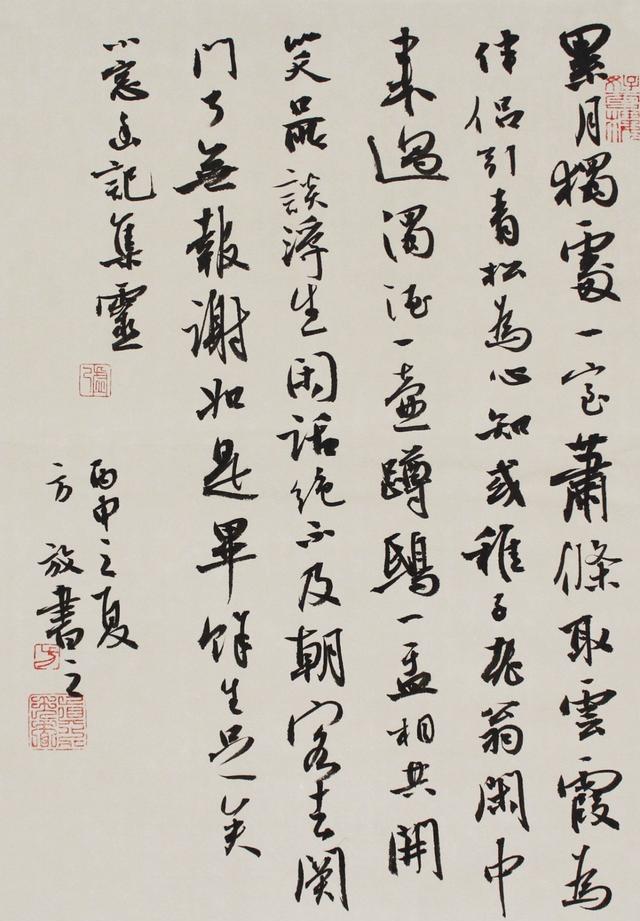 累月獨處一室蕭條取雲霞為
伴侶引青松為心知或稚子老翁閑中
來過濁酒一壺蹲鴟一盂相共開
笑口所談浮生閑話絕不及朝客去関
門了無報謝如是畢餘生足矣
小窗幽記集靈
丙申之夏
方放書之